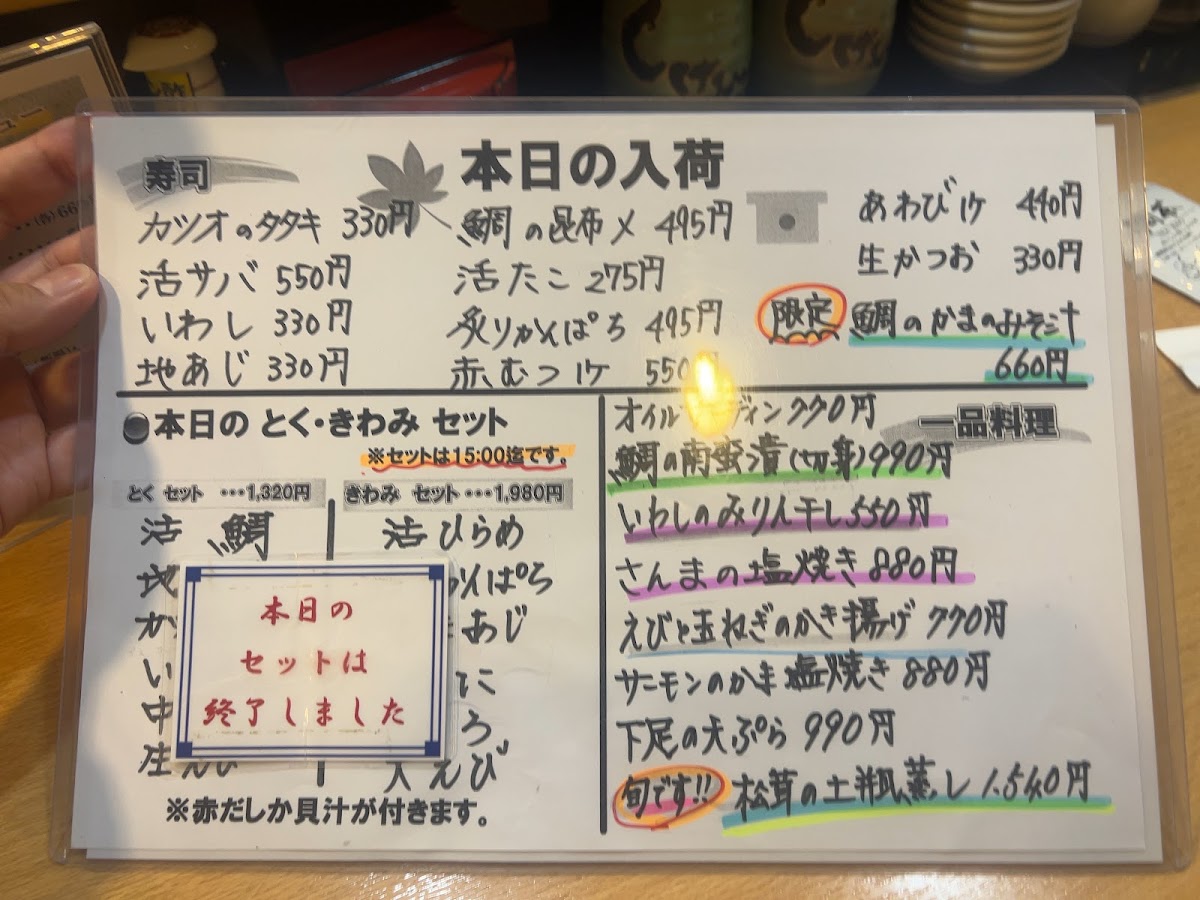 本日の入荷
寿司
カツオのタタキ 330円
活サバ 550円
いわし 330円
地あじ 330円
鯛の昆布〆 495円
活たこ 275円
炙りかんぱち 495円
赤むつ1ケ 550
あわび1ケ 440円
生かつお 330円
限定 鯛のかまのみそ汁
660円
●本日の とく・きわみ セット
※セットは15:00迄です。
とく セット ・・・1,320円
活 鯛
地
か
い
中
きわみ セット・・・1,980円
活ひらめ
んぱち
あじ
に
ろ
えび
本日の
セットは
終了しました
※赤だしか貝汁が付きます。
一品料理
オイル ディン 770円
鯛の南蛮漬(切身)990円
いわしのみりん干し550円
さんまの塩焼き 880円
えびと玉ねぎのかき揚げ 770円
サーモンのかま塩焼き 880円
下足の天ぷら 990円
旬です!! 松茸の土瓶蒸し 1,540円